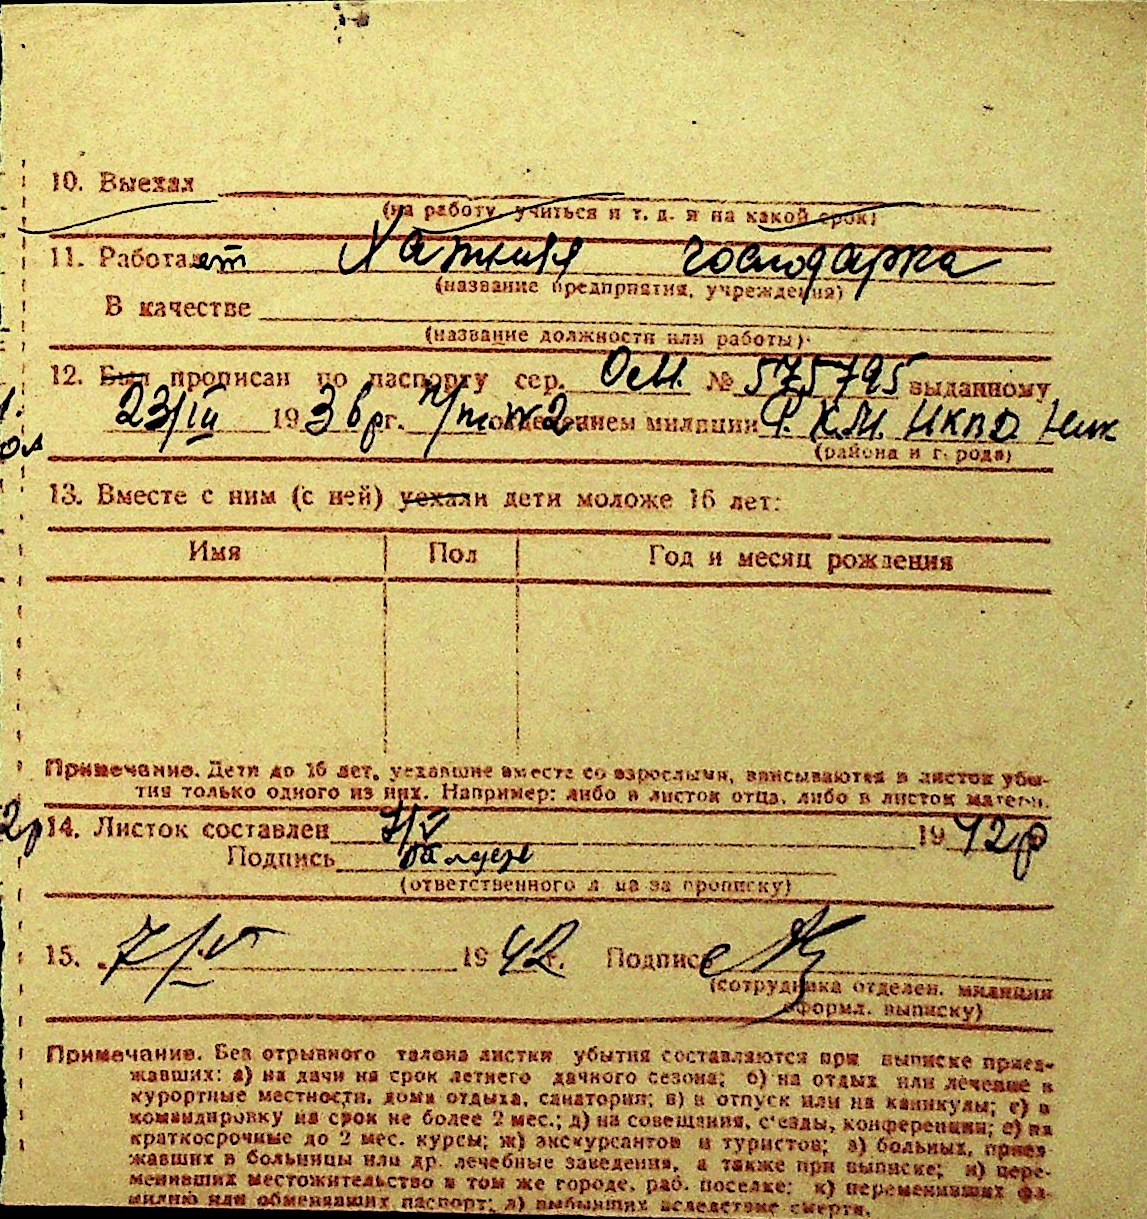 10. Выехал
(на работу, учиться и т. д. и на какой срок)
11. Работает Хатния господарка
(название предприятия, учреждения)
В качестве
(название должности или работы)
12. Был прописан по паспорту сер. ОеМ. № 575795 выданному
23/III 1936 рг. отделением милиции Р. К.М. НКВД
(района и города)
13. Вместе с ним (с ней) уехали дети моложе 16 лет:
Имя Пол Год и месяц рождения
Примечание. Дети до 16 лет, уехавшие вместе со взрослыми, вписываются в листок убы-
тия только одного из них. Например: либо в листок отца, либо в листок матери.
14. Листок составлен 7/V 1942р
Подпись
(ответственного лица за прописку)
15. 7/V 1942г. Подпись
(сотрудника отделен. милиции
оформл. выписку)
Примечание. Без отрывного талона листки убытия составляются при выписке приез-
жавших: а) на дачи на срок летнего дачного сезона; б) на отдых или лечение в
курортные местности, дома отдыха, санатории; в) в отпуск или на каникулы; г) в
командировку на срок не более 2 мес.; д) на совещания, съезды, конференции; е) на
краткосрочные до 2 мес. курсы; ж) экскурсантов и туристов; з) больных, приез-
жавших в больницы или др. лечебные заведения, а также при выписке; и) пере-
менивших местожительство в том же городе, раб. поселке; к) переменивших фа-
милию или обменявших паспорт; л) выбывших вследствие смерти.